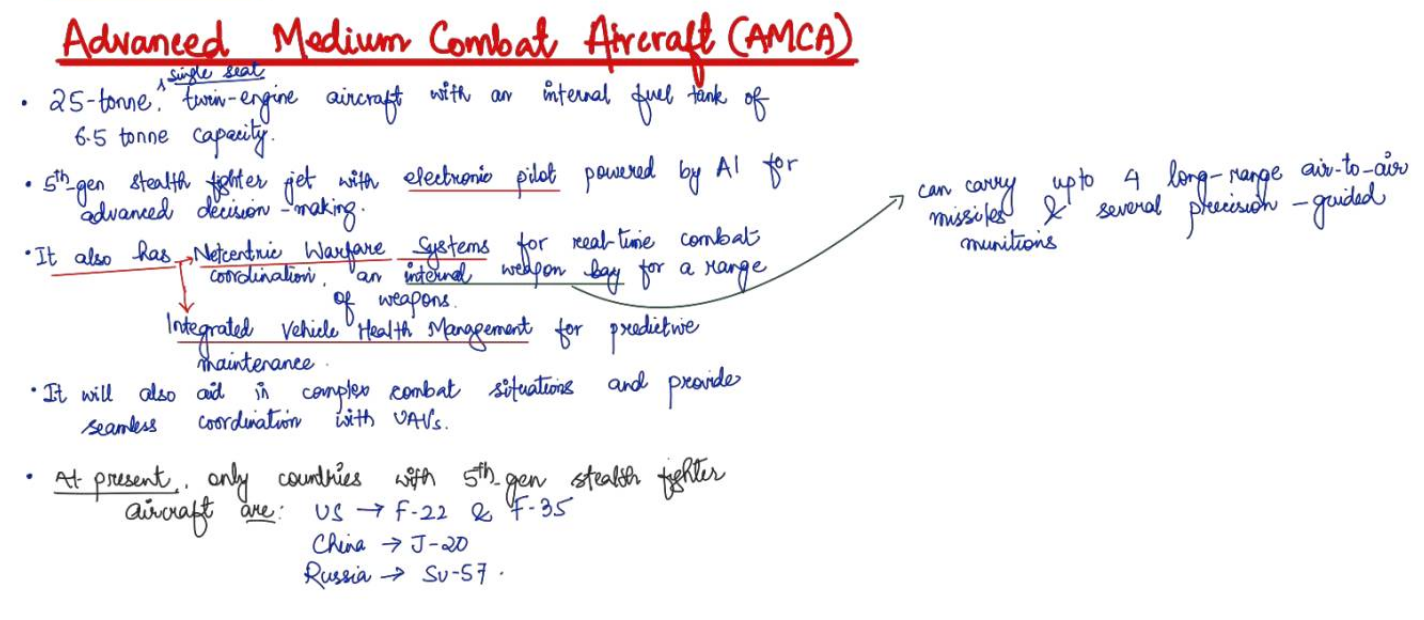 Advanced Medium Combat Aircraft (AMCA)
single seat
• 25-tonne, twin-engine aircraft with an internal fuel tank of
6.5 tonne capacity.
• 5th-gen stealth fighter jet with electronic pilot powered by AI for
advanced decision-making.
• It also has → Netcentric Warfare Systems for real-time combat
coordination, an internal weapon bay for a range
of weapons.
Integrated Vehicle Health Management for predictive
maintenance.
can carry upto 4 long-range air-to-air
missiles & several precision-guided
munitions
• It will also aid in complex combat situations and provide
seamless coordination with UAVs.
• At present, only countries with 5th-gen stealth fighter
aircraft are: US → F-22 & F-35
China → J-20
Russia → Su-57.